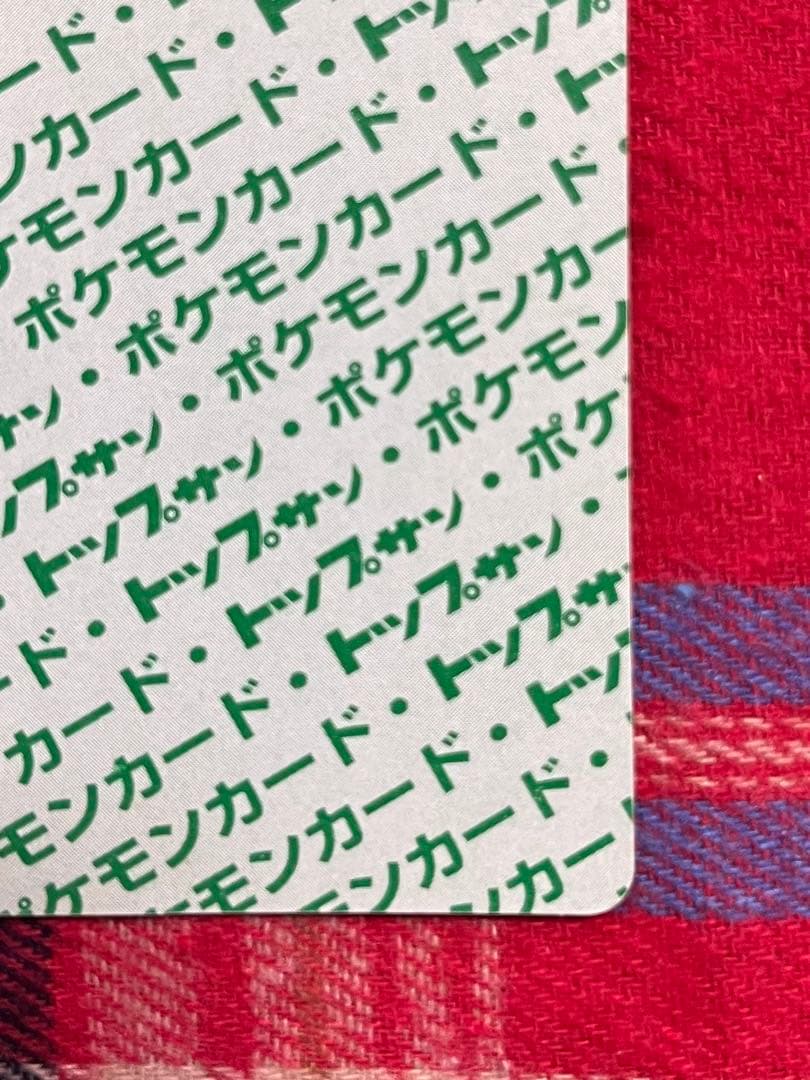 ード・
ンカード・ト
ケモンカード・トッ
ポケモンカード・トップ
サン・ポケモンカード・トッ
ップサン・ポケモンカード・
・トップサン・ポケモンカー
ード・トップサン・ポケモン
カード・トップサン・ポケ
モンカード・トップサン・
ポケモンカード・トップサ
ケモンカード・トッ
ンカード・
ンカー